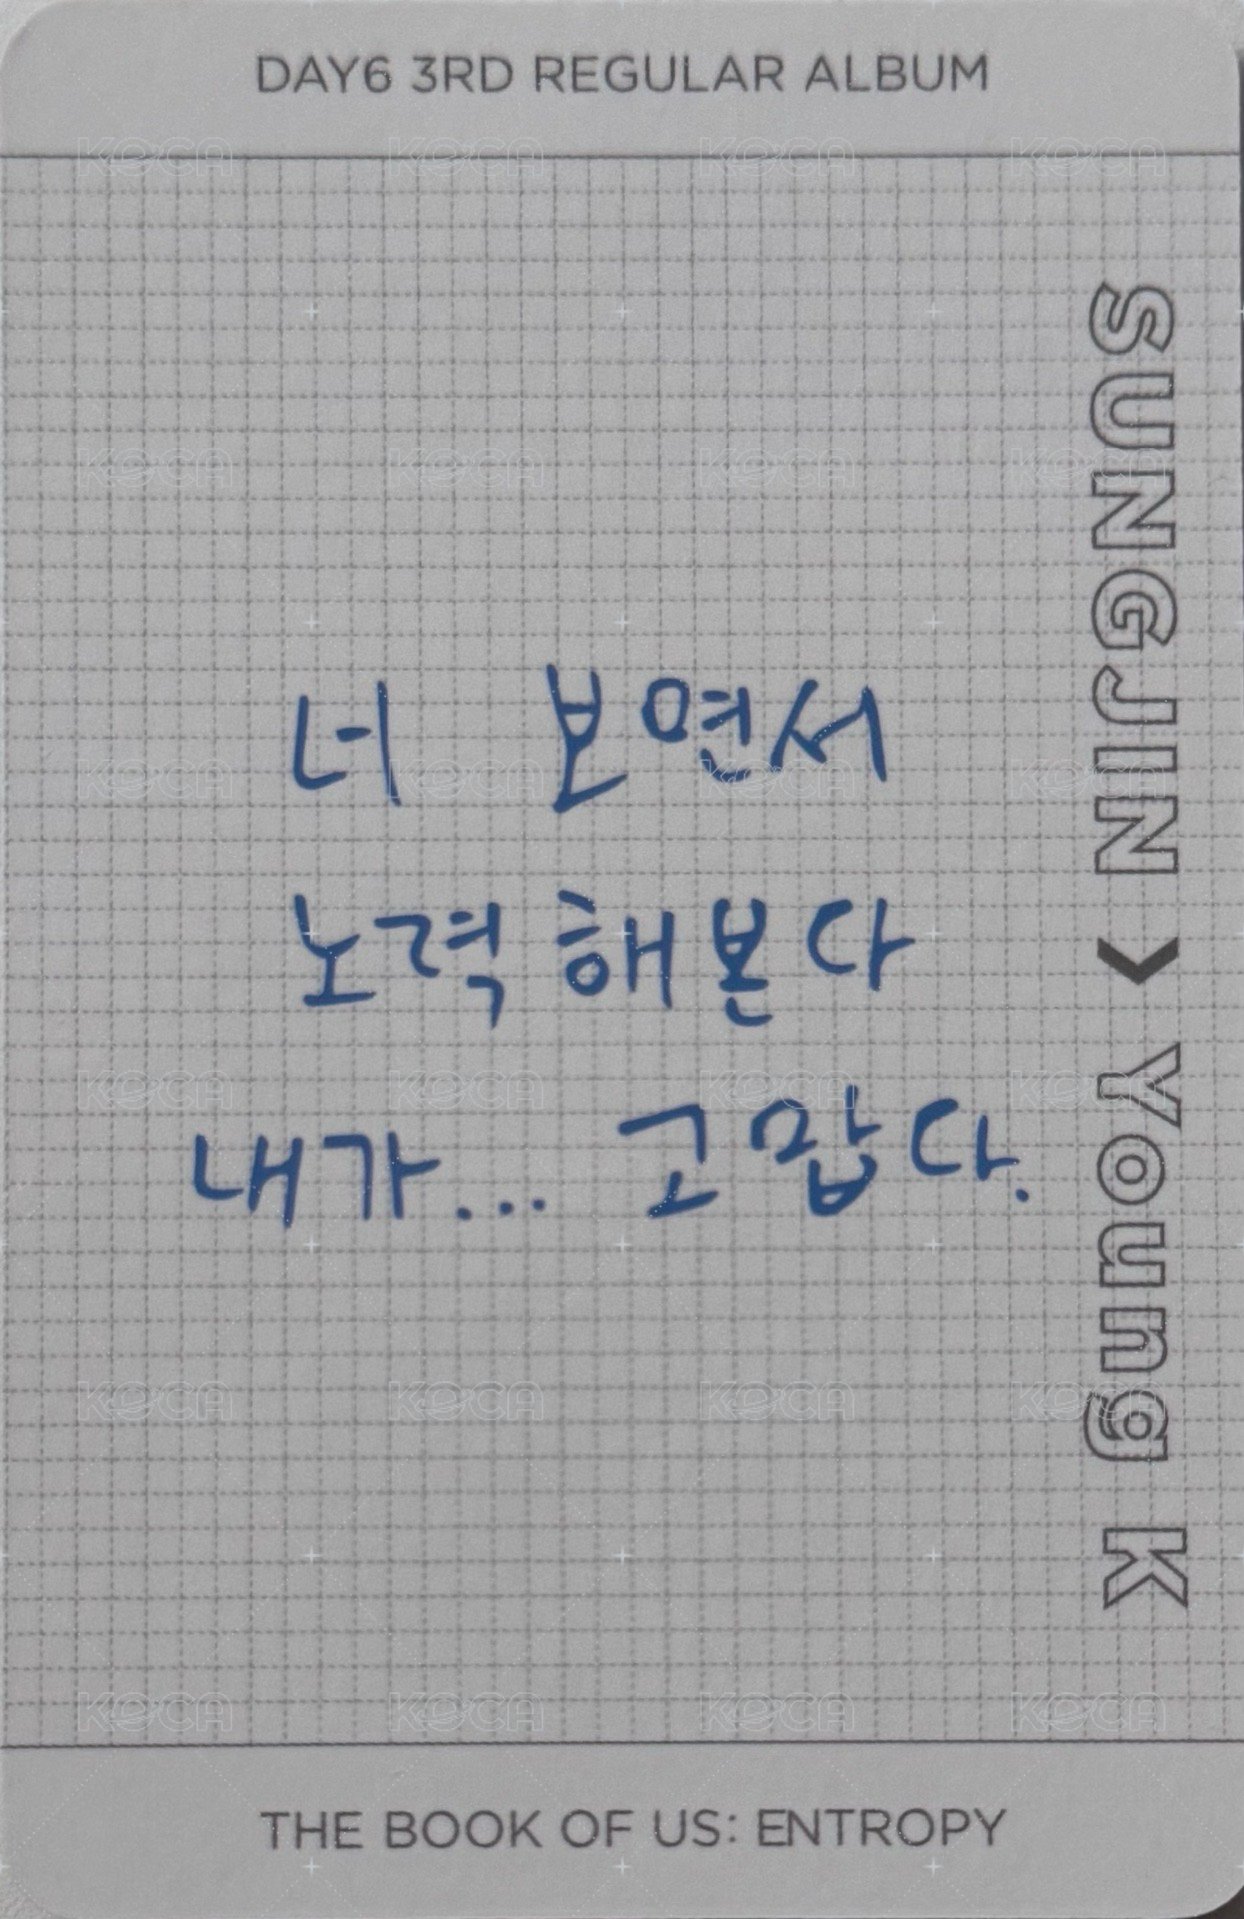 DAY6 3RD REGULAR ALBUM
너 보면서
노력해본다
내가... 고맙다.
SUNGJIN > Young K
THE BOOK OF US: ENTROPY
KOCA